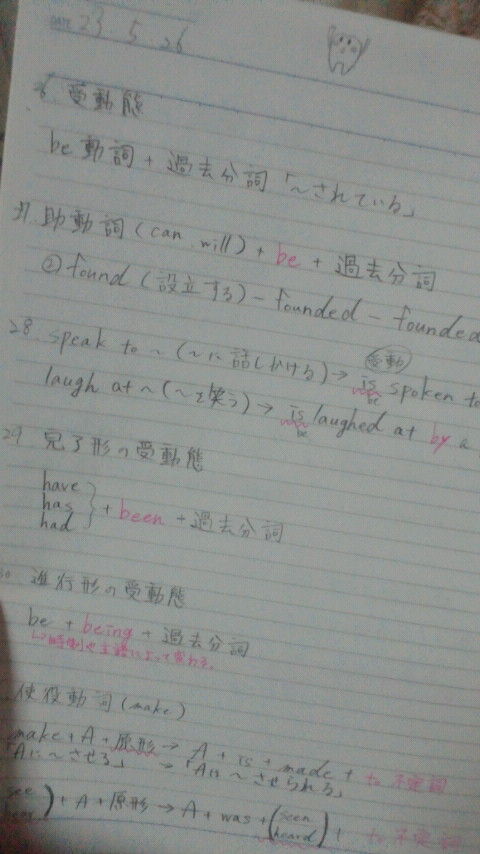 DATE 23. 5. 26
受動態
be動詞 + 過去分詞「~されている」
助動詞(can. will) + be + 過去分詞
② found (設立する) - founded - founded
28. speak to ~ (~に話しかける) → is spoken to
受動
be
laugh at ~ (~を笑う) → is laughed at by a
be
29 完了形の受動態
have
has
had
+ been + 過去分詞
進行形の受動態
be + being + 過去分詞
↳時制や主語によって変わる。
使役動詞(make)
make + A + 原形 → A + is + made + to 不定詞
「Aに~させる」 → 「Aは~させられる」
see
hear
) + A + 原形 → A + was + (seen
heard) + to 不定詞